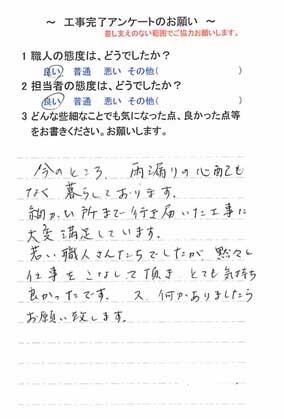 ～ 工事完了アンケートのお願い ～
差し支えのない範囲でご協力お願いします。
1 職人の態度は、どうでしたか？
良い 普通 悪い その他( )
2 担当者の態度は、どうでしたか？
良い 普通 悪い その他( )
3 どんな些細なことでも気になった点、良かった点等
をお書きください。お願いします。
今のところ、雨漏りの心配も
なく暮らしております。
細かい所まで行き届いた工事に
大変満足しています。
若い職人さんたちでしたが黙々と
仕事をこなして頂き とても気持ち
良かったです。又、何かありましたら
お願い致します。